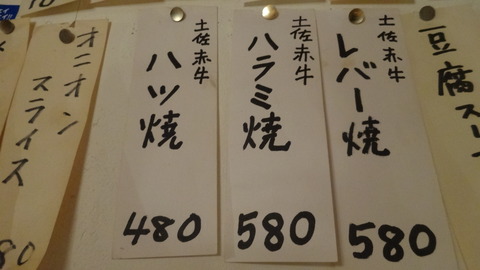 豆腐スリ
土佐赤牛
レバー焼
580
土佐赤牛
ハラミ焼
580
土佐赤牛
ハツ焼
480
オニオン
スライス
80